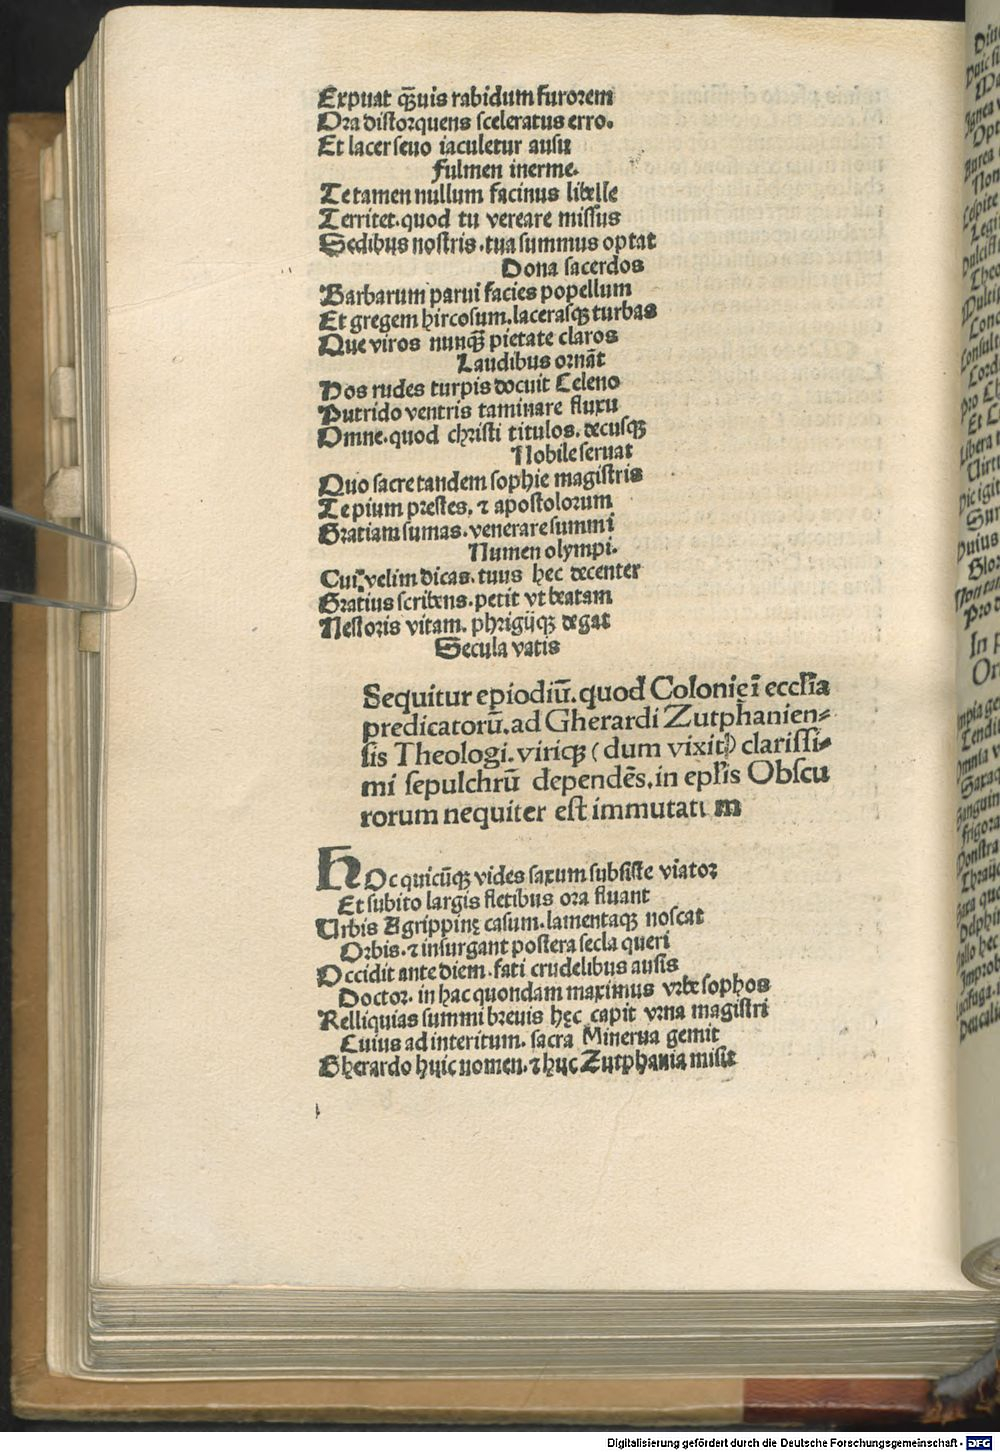 Expuat qͣuis rabidum furorem
Ora distorquens sceleratus erro.
Et lacer seuo iaculetur ausu
Fulmen inerme.
Te tamen nullum facinus libelle
Territet. quod tu vereare missus
Sedibus nostris. tua summus optat
Dona sacerdos
Barbarum parui facies popellum
Et gregem hircosum. lacerasqꝫ turbas
Que viros nunqͣꝫ pietate claros
Laudibus ornāt
Hos rudes turpis docuit Celeno
Putrido ventris taminare fluxu
Omne. quod christi titulos. decusqꝫ
Nobile seruat
Quo sacre tandem sophie magistris
Te pium prestes. ⁊ apostolorum
Gratiam sumas. venerare summi
Numen olympi.
Cui velim dicas. tuus hec decenter
Gratius scribens. petit vt beatam
Nestoris vitam. phrigiiqꝫ degat
Secula vatis
Sequitur epiodiū. quod Colonię ī eccl'ia
predicatorū. ad Gherardi Zutphanien⸗
sis Theologi. viriqꝫ (dum vixit) clarissi⸗
mi sepulchrū dependēs. in epl'is Obscu
rorum nequiter est immutatum
HOc quicūqꝫ vides saxum subsiste viator
Et subito largis fletibus ora fluant
Urbis Agrippinę casum. lamentaqꝫ noscat
Orbis. ⁊ insurgant postera secla queri
Occidit ante diem. fati crudelibus ausis
Doctor. in hac quondam maximus vrbe sophos
Relliquias summi breuis hęc capit vrna magistri
Cuius ad interitum. sacra Minerua gemit
Gherardo huic nomen. ⁊ huc Zutphania misit
Digitalisierung gefördert durch die Deutsche Forschungsgemeinschaft - DFG